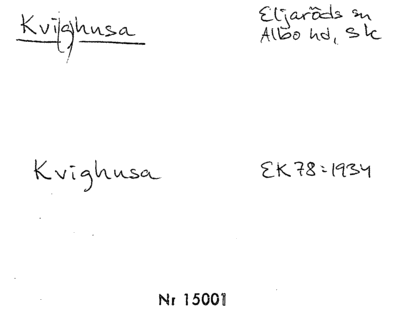 Kvi(g)husa
Eljaröds sn
Albo hd, Sk
Kvighusa
EK78:1934
Nr 15001